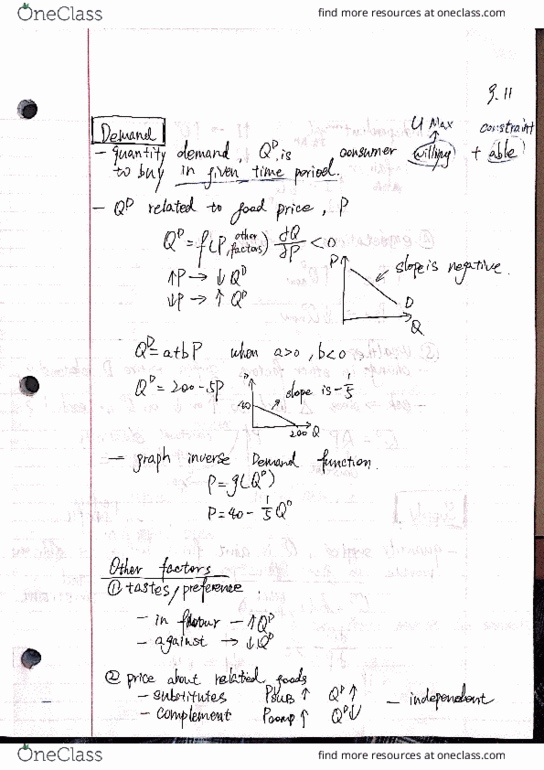 OneClass
find more resources at oneclass.com
9.11
Demand
U Max
constraint
- quantity demand, Qᴰ, is consumer willing + able
to buy in given time period.
- Qᴰ related to good price, P
Qᴰ = f(P, other factors) ∂Q/∂P < 0
↑P → ↓ Qᴰ
↓P → ↑ Qᴰ
P
slope is negative.
D
Q
Qᴰ = a+bP when a>0, b<0
Qᴰ = 200-5P
slope is -1/5
40
200 Q
- graph inverse Demand function.
P = g(Qᴰ)
P = 40 - 1/5 Qᴰ
Other factors
① tastes/preference :
- in flavour - ↑Qᴰ
- against → ↓Qᴰ
② price about related goods
- substitutes PSUB ↑ Qᴰ ↑ - independent
- complement Pcomp ↑ Qᴰ↓
OneClass
find more resources at oneclass.com